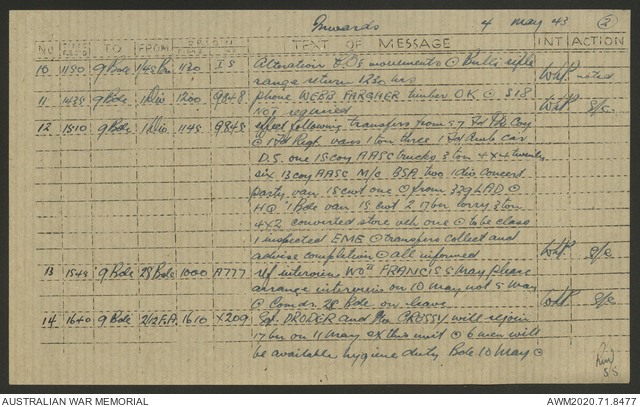 Inwards 4 May 43 2
NO TIME TO FROM TEXT OF MESSAGE INT ACTION
10 1150 9 Bde 1130 IS Alteration movements ⊙ rifle
range return 1230 hrs noted
11 1435 9 Bde 1 Div 1200 G848 phone WEBB FARGHER timber OK ⊙ S18
Not required
12 1510 9 Bde 1 Div 1145 G845 effect following transfers from 57 Coy
⊙ Regt vans 1 ton three 1 Fd Amb car
D.S. one 15 coy AASC trucks 3 ton 4x4 twenty
six 13 coy AASC M/C BSA two 1 div concert
party van 15 cwt one ⊙ from 339 LAD ⊙
HQ 1 Bde van 15 cwt 2 17 bn lorry 3 ton
4x2 converted store veh one ⊙ to be class
1 inspected EME ⊙ transfers collect and
advise completion ⊙ all informed
13 1545 9 Bde 28 Bde 1000 A777 ref interview FRANCIS 5 May please
arrange interview on 10 May not 5 May
⊙ Comdr. 28 Bde on leave
14 1640 9 Bde 2/2 F.A. 1610 X209 and CROSSY will rejoin
17 bn on 11 May ex this unit ⊙ 6 men will
be available hygiene duty Bde 10 May ⊙
AUSTRALIAN WAR MEMORIAL AWM2020.71.8477